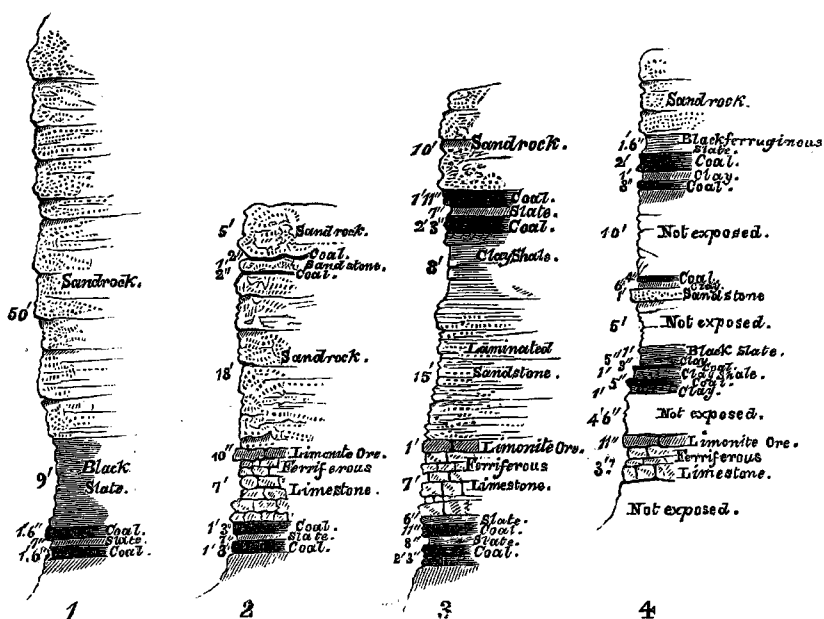 Sandrock.
50'
9'
Black
Slate.
1'.6" Coal.
7" Slate.
1'.6" Coal.
1
5' Sandrock.
2" Coal.
1' Sandstone.
2" Coal.
18' Sandrock.
10" Limonite Ore.
Ferriferous
7' Limestone.
1'3" Coal.
Slate.
1'3" Coal.
2
10' Sandrock.
1'11" Coal.
7" Slate.
2'3" Coal.
8' Clay Shale.
Laminated
15' Sandstone.
1' Limonite Ore.
Ferriferous
7' Limestone.
6" Slate.
11" Coal.
8" Slate.
2'3" Coal.
3
Sandrock.
1'.6" Black ferruginous
Slate.
2' Coal.
1' Clay.
8" Coal.
10' Not exposed.
4" Coal.
6" Clay.
1' Sandstone
5' Not exposed.
1' Black Slate.
5" Clay.
3" Coal.
1' Clay Shale.
5" Coal.
1' Clay.
4'6" Not exposed.
11" Limonite Ore.
Ferriferous
3'.? Limestone.
Not exposed.
4